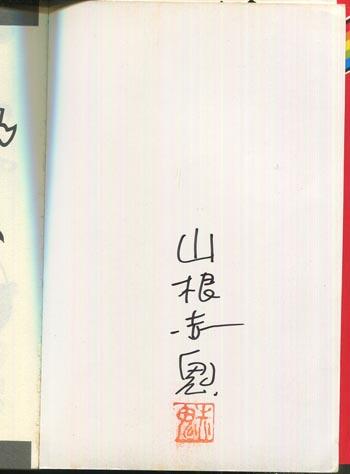 山根赤鬼